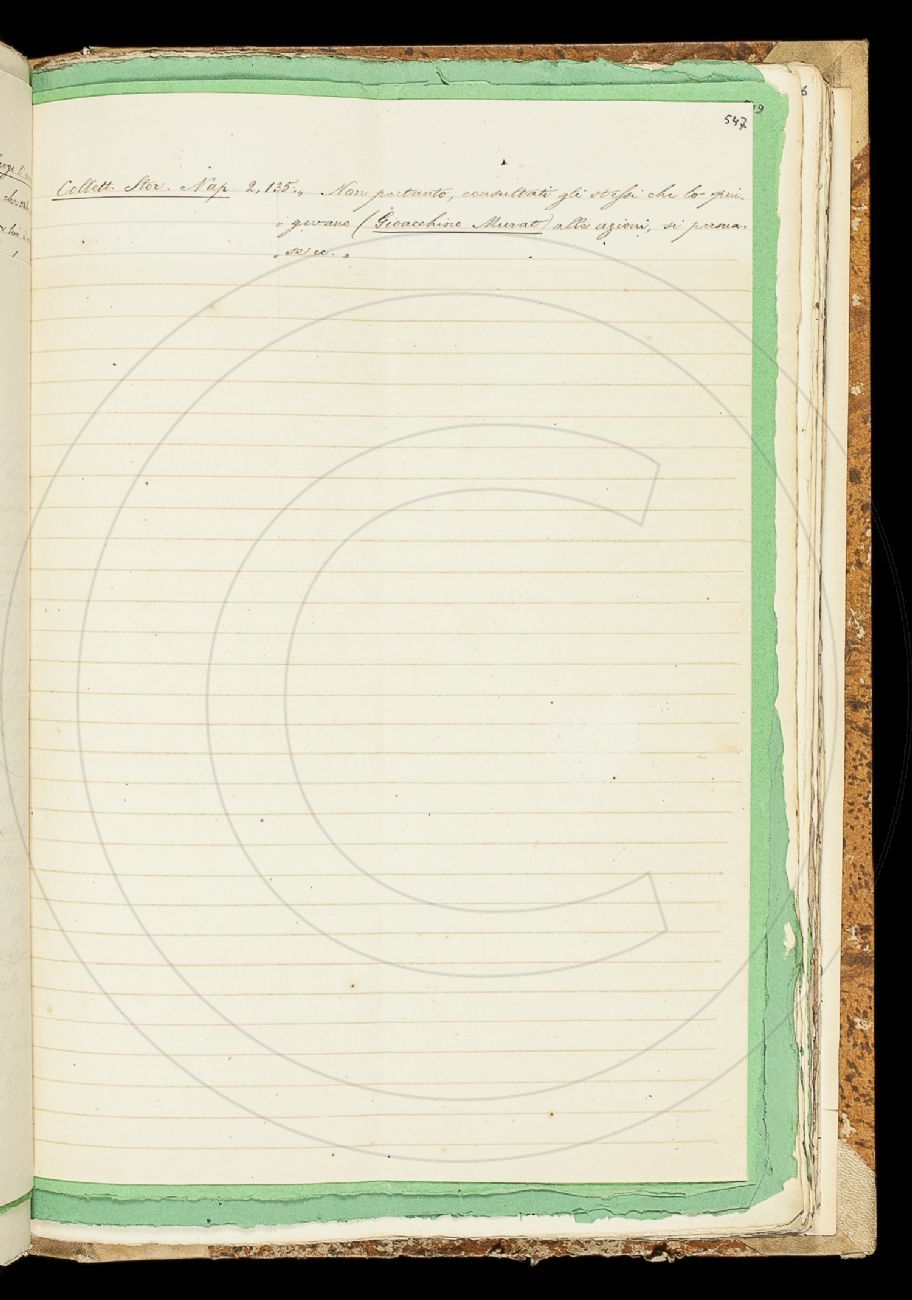 547
Collett. Stor. Nap. 2, 135. „ Non pertanto, consultati gli stessi che lo spin-
„ gevano (Gioacchino Murat) alle azioni, si persua-
„ se ec. „